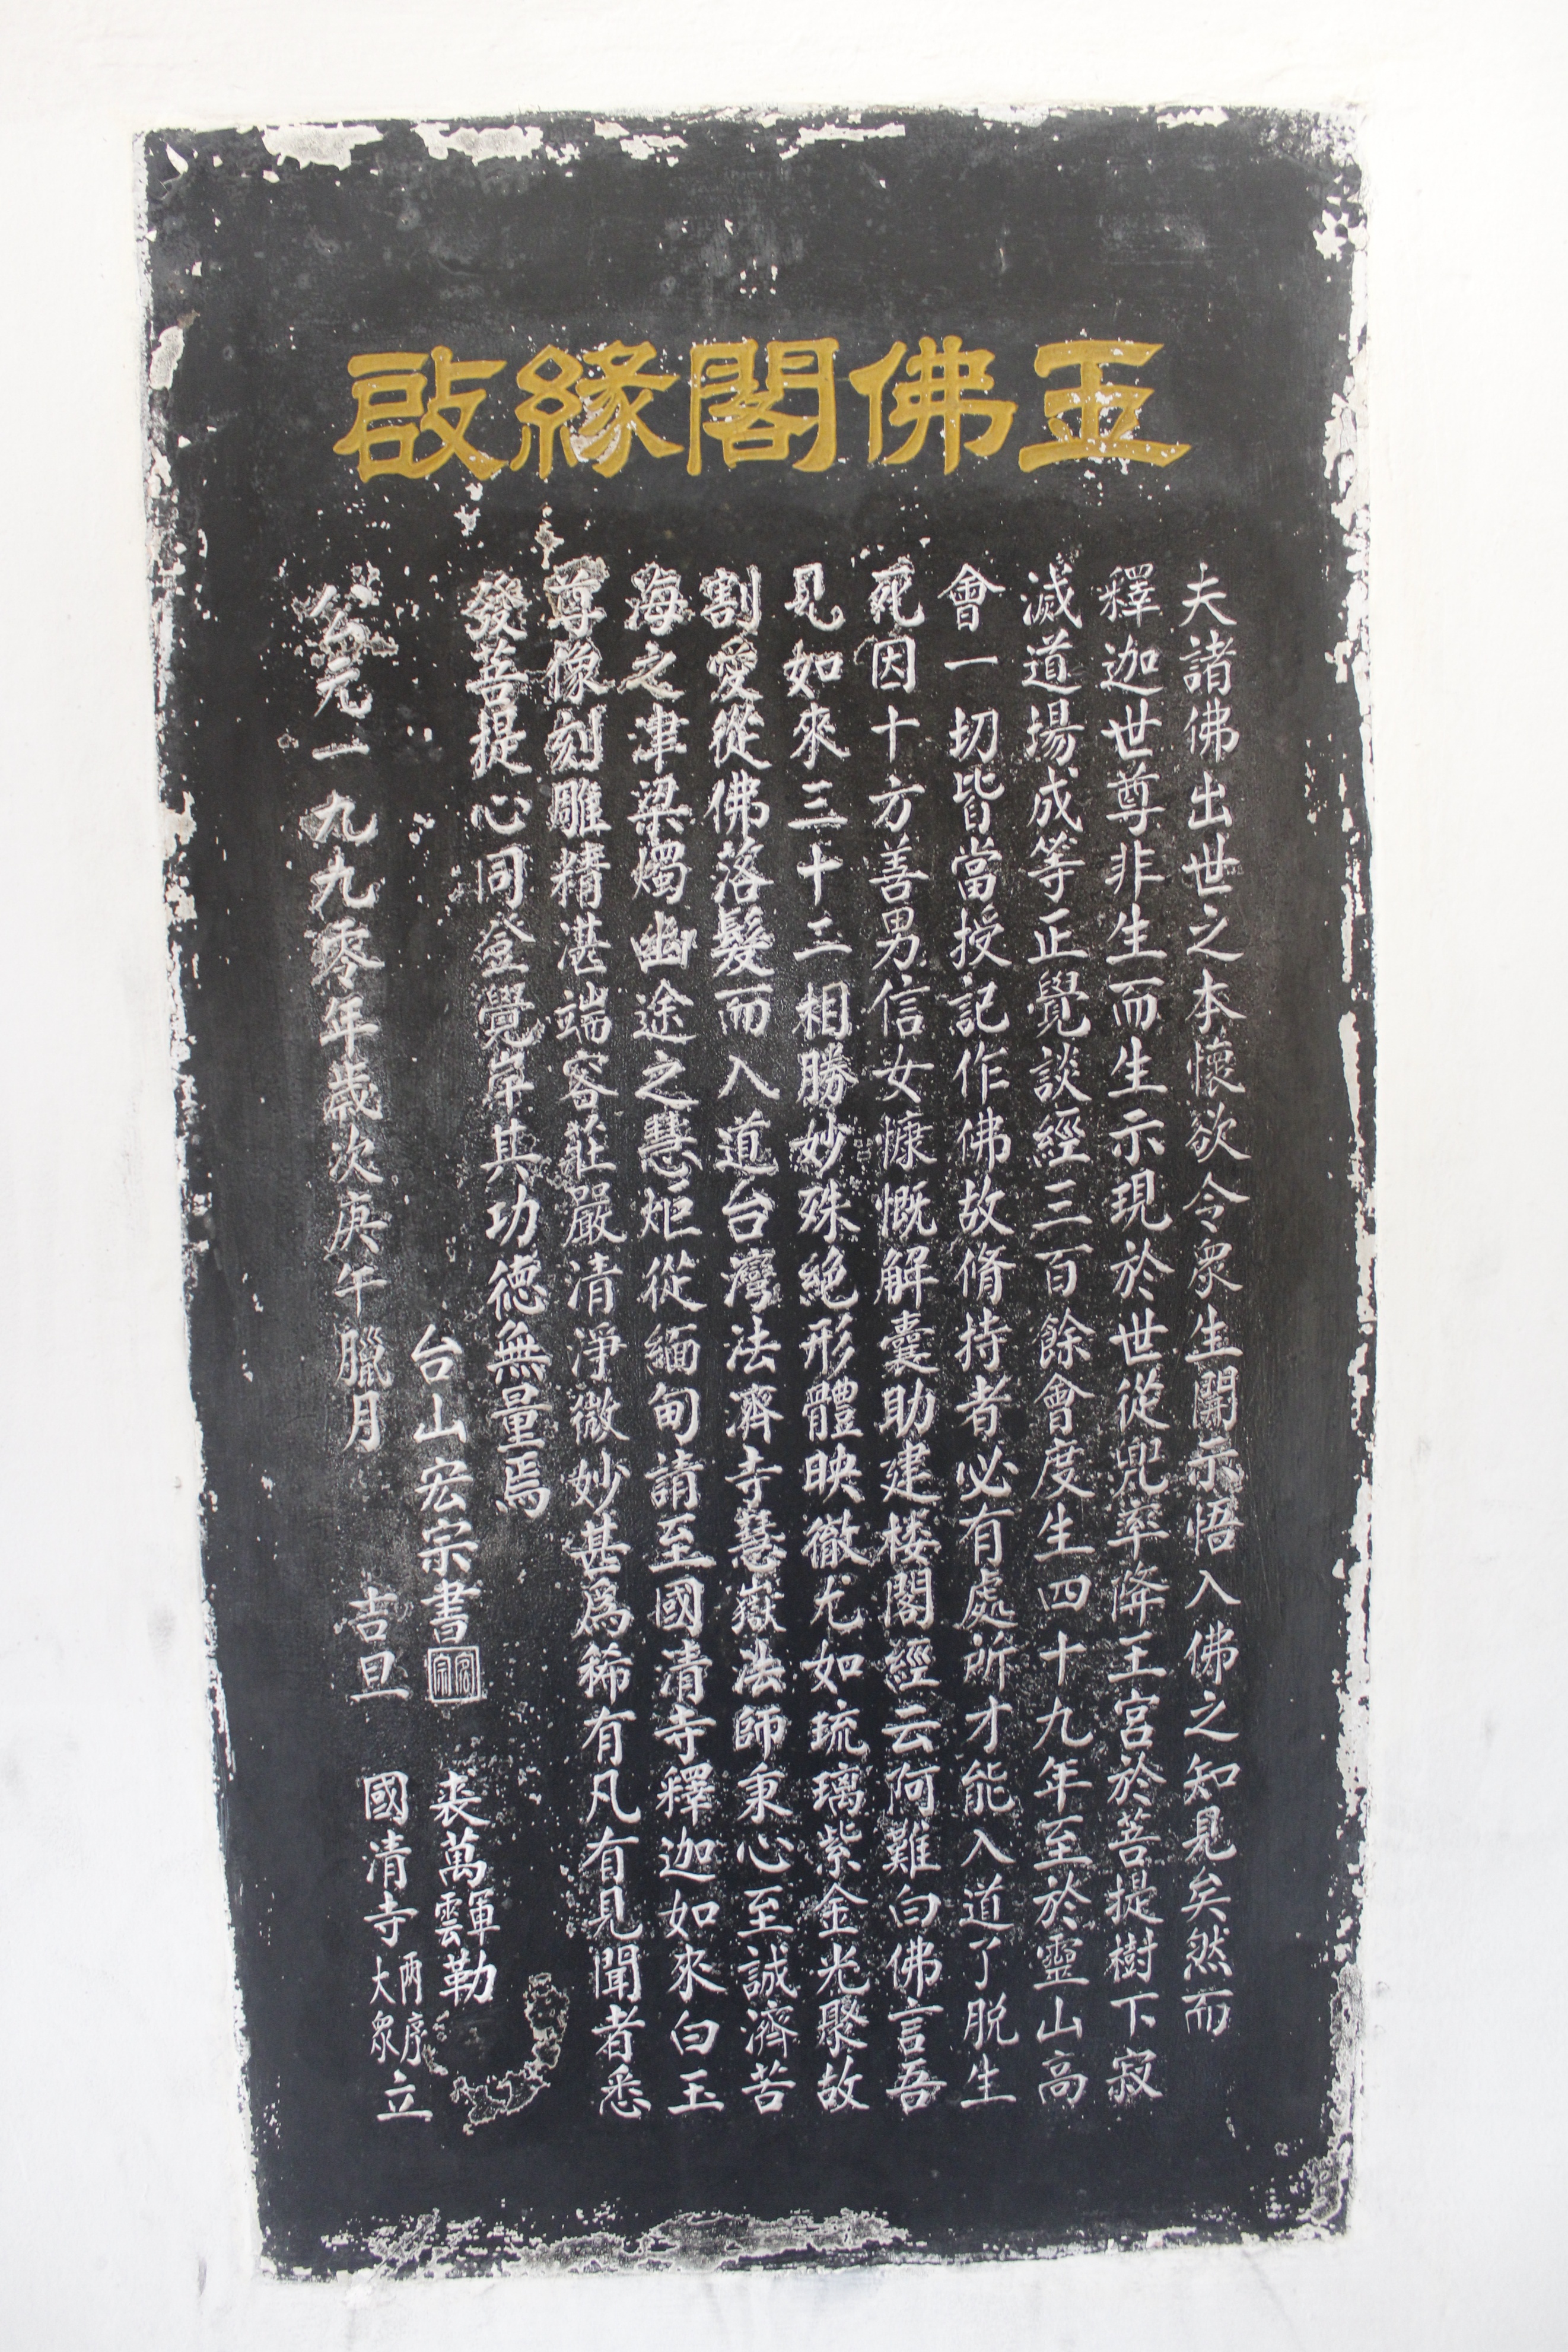 玉佛閣緣啟
夫諸佛出世之本懷欲令眾生開示悟入佛之知見矣然而
釋迦世尊非生而生示現於世從兜率降王宮於菩提樹下寂
滅道場成等正覺談經三百餘會度生四十九年至於靈山高
會一切皆當授記作佛故脩持者必有處所才能入道了脫生
死因十方善男信女慷慨解囊助建楼閣經云阿難白佛言吾
見如來三十二相勝妙殊絕形體映徹尤如琉璃紫金光聚故
割愛從佛落髮而入道台灣法濟寺慧嶽法師秉心至誠濟苦
海之津梁燭幽途之慧炬從緬甸請至國清寺釋迦如來白玉
尊像刻雕精湛端容莊嚴清淨微妙甚為稀有凡有見聞者悉
發菩提心同登覺岸其功德無量焉
台山宏宗書 宏宗 裘萬軍雲勒
公元一九九零年歲次庚午臘月 吉旦 國清寺兩序大眾立